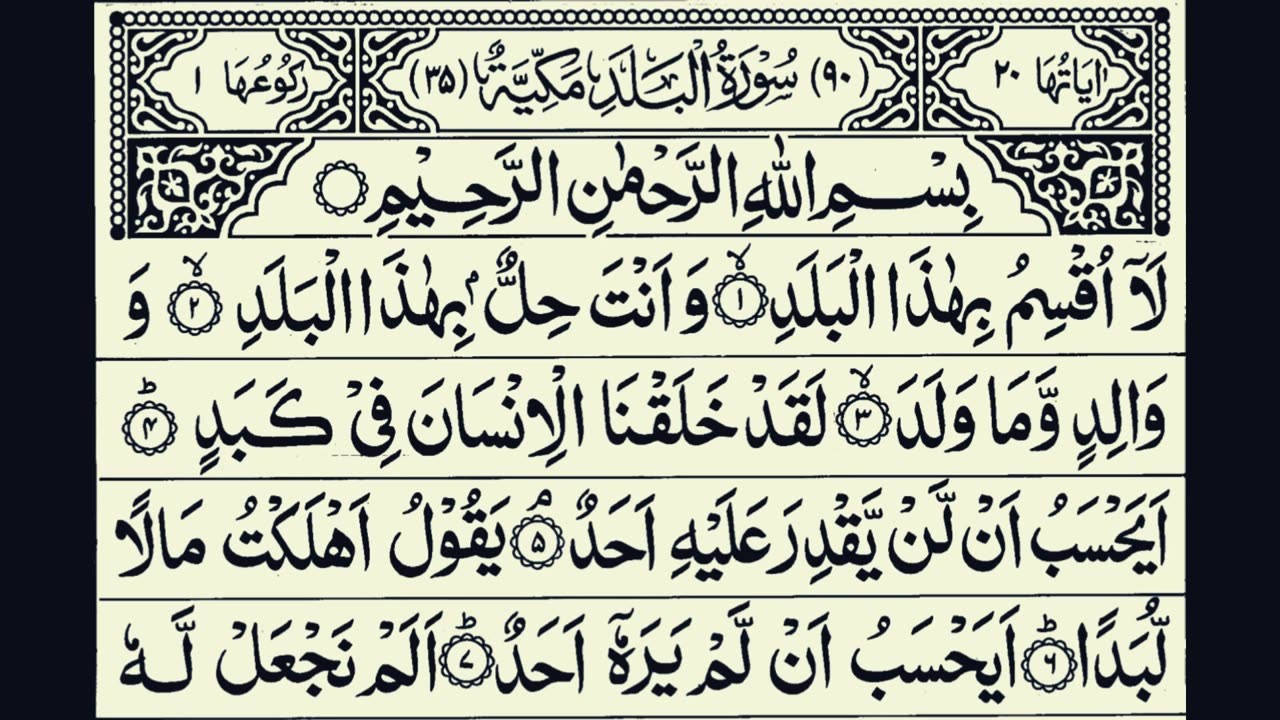 اٰيَاتُهَا ٢٠ (٩٠) سُوْرَةُ الْبَلَدِ مَكِّيَّةٌ (٣٥) رَكُوْعُهَا ١
بِسْمِ اللّٰهِ الرَّحْمٰنِ الرَّحِيْمِ
لَاۤ اُقْسِمُ بِهٰذَا الْبَلَدِ ۙ﴿١﴾ وَ اَنْتَ حِلٌّۢ بِهٰذَا الْبَلَدِ ۙ﴿٢﴾ وَ
وَالِدٍ وَّمَا وَلَدَ ۙ﴿٣﴾ لَقَدْ خَلَقْنَا الْاِنْسَانَ فِيْ كَبَدٍ ؕ﴿۴﴾
اَيَحْسَبُ اَنْ لَّنْ يَّقْدِرَ عَلَيْهِ اَحَدٌ ۘ﴿۵﴾ يَقُوْلُ اَهْلَكْتُ مَالًا
لُّبَدًا ؕ﴿۶﴾ اَيَحْسَبُ اَنْ لَّمْ يَرَهٗۤ اَحَدٌ ؕ﴿٧﴾ اَلَمْ نَجْعَلْ لَّهٗ